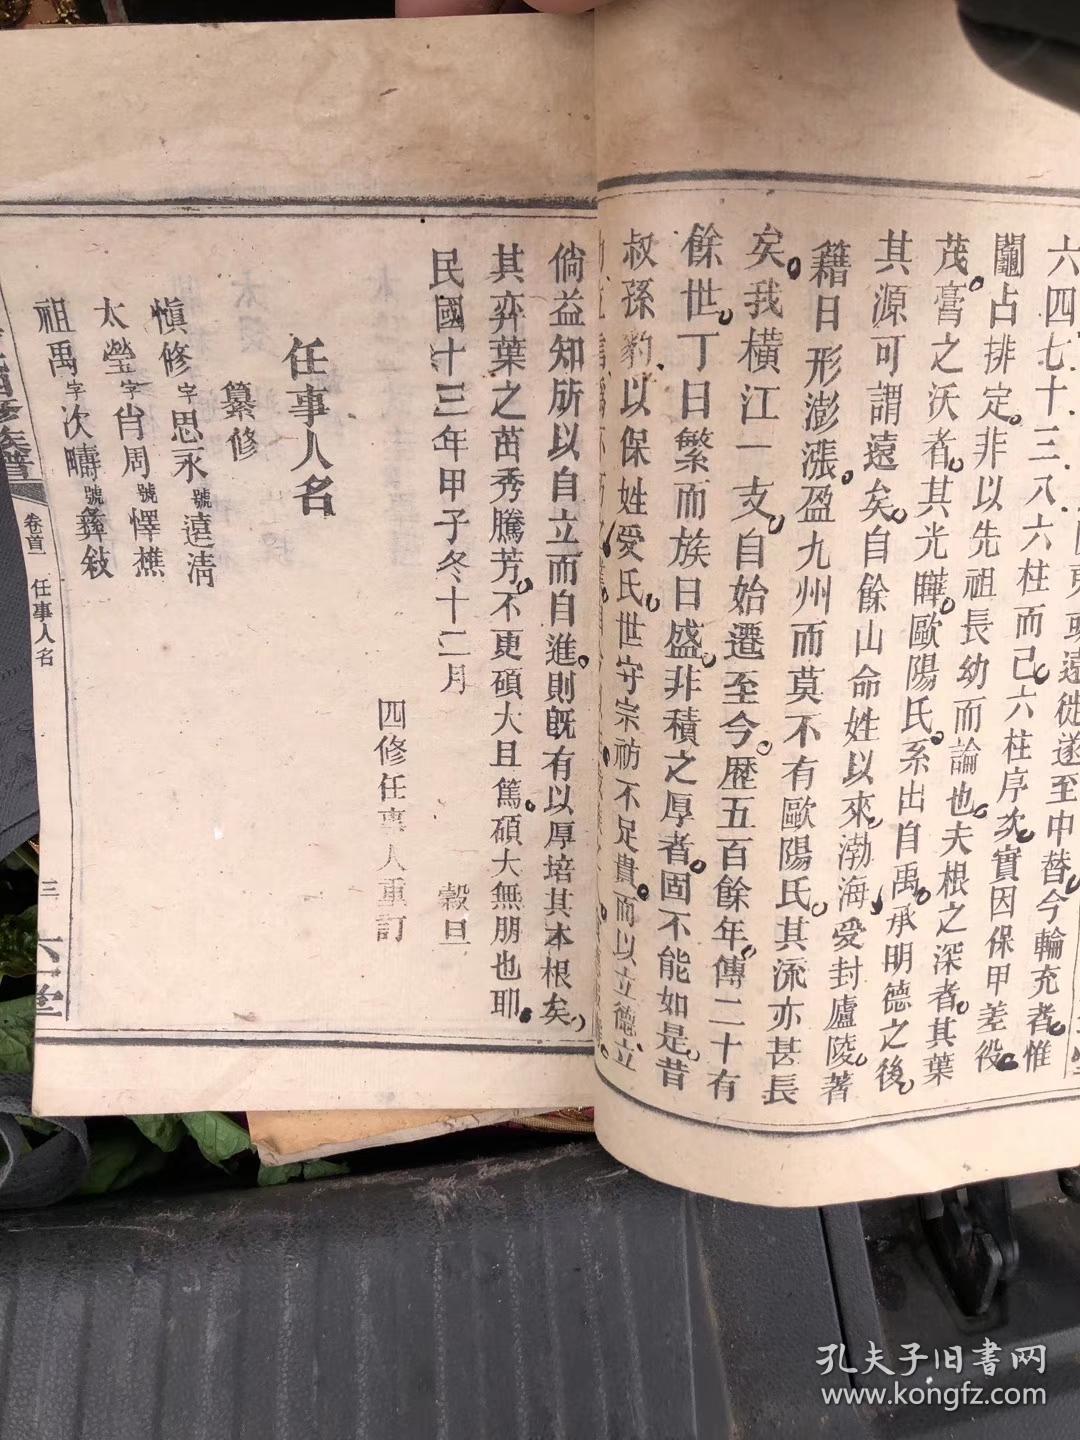 六四七十三八六柱而已六柱序次實因保甲差役
鬮占排定非以先祖長幼而論也夫根之深者其葉
茂膏之沃者其光曄歐陽氏系出自禹承明德之後
其源可謂遠矣自餘山命姓以來渤海受封廬陵著
籍日形澎漲盈九州而莫不有歐陽氏其流亦甚長
矣我橫江一支自始遷至今歷五百餘年傳二十有
餘世丁日繁而族日盛非積之厚者固不能如是昔
叔孫豹以保姓受氏世守宗祊不足貴而以立德立
倘益知所以自立而自進則旣有以厚培其本根矣
其弈葉之茁秀騰芳不更碩大且篤碩大無朋也耶
民國十三年甲子冬十二月 穀旦
四修任事人重訂
任事人名
纂修
愼修字思永號遠淸
太瑩字肖周號懌樵
祖禹字次疇號彝敍
四修族譜 卷首 任事人名 三 六一堂
孔夫子旧書网
www.kongfz.com